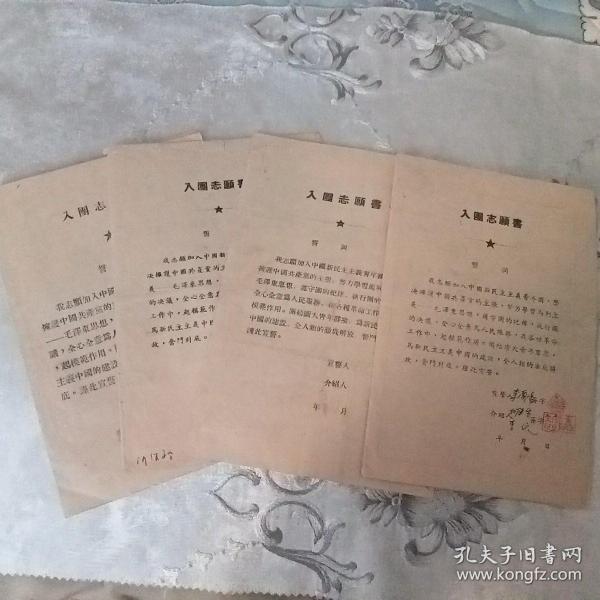 入團志
★
我志願加入中國
擁護中國共產黨的
——毛澤東思想,
議,全心全意為人
,起模範作用,
主義中國的建設
底。謹此宣誓
入團志願書
★
誓
我志願加入中國新
決擁護中國共產黨的主
義——毛澤東思想,
的決議,全心全意為
工作中,起模範作
為新民主主義中
扶,奮鬥到底。
入團志願書
★
誓詞
我志願加入中國新民主主義青年團
擁護中國共產黨的主張,努力學習馬
毛澤東思想,遵守團的紀律,執行團的
全心全意為人民服務,在各種革命工作
模範作用,團結廣大青年群衆,為新民
中國的建設,全人類的徹底解放,奮鬥
謹此宣誓。
宣誓人
介紹人
年 月
入團志願書
★
誓詞
我志願加入中國新民主主義青年團,堅
決擁護中國共產黨的主張,努力學習馬列主
義——毛澤東思想,遵守團的紀律,執行團
的決議,全心全意為人民服務,在各種革命
工作中,起模範作用,團結廣大青年羣衆,
為新民主主義中國的建設,全人類的徹底解
放,奮鬥到底。謹此宣誓。
宣誓人
介紹人
年 月 日
孔夫子旧書网
www.kongfz.com